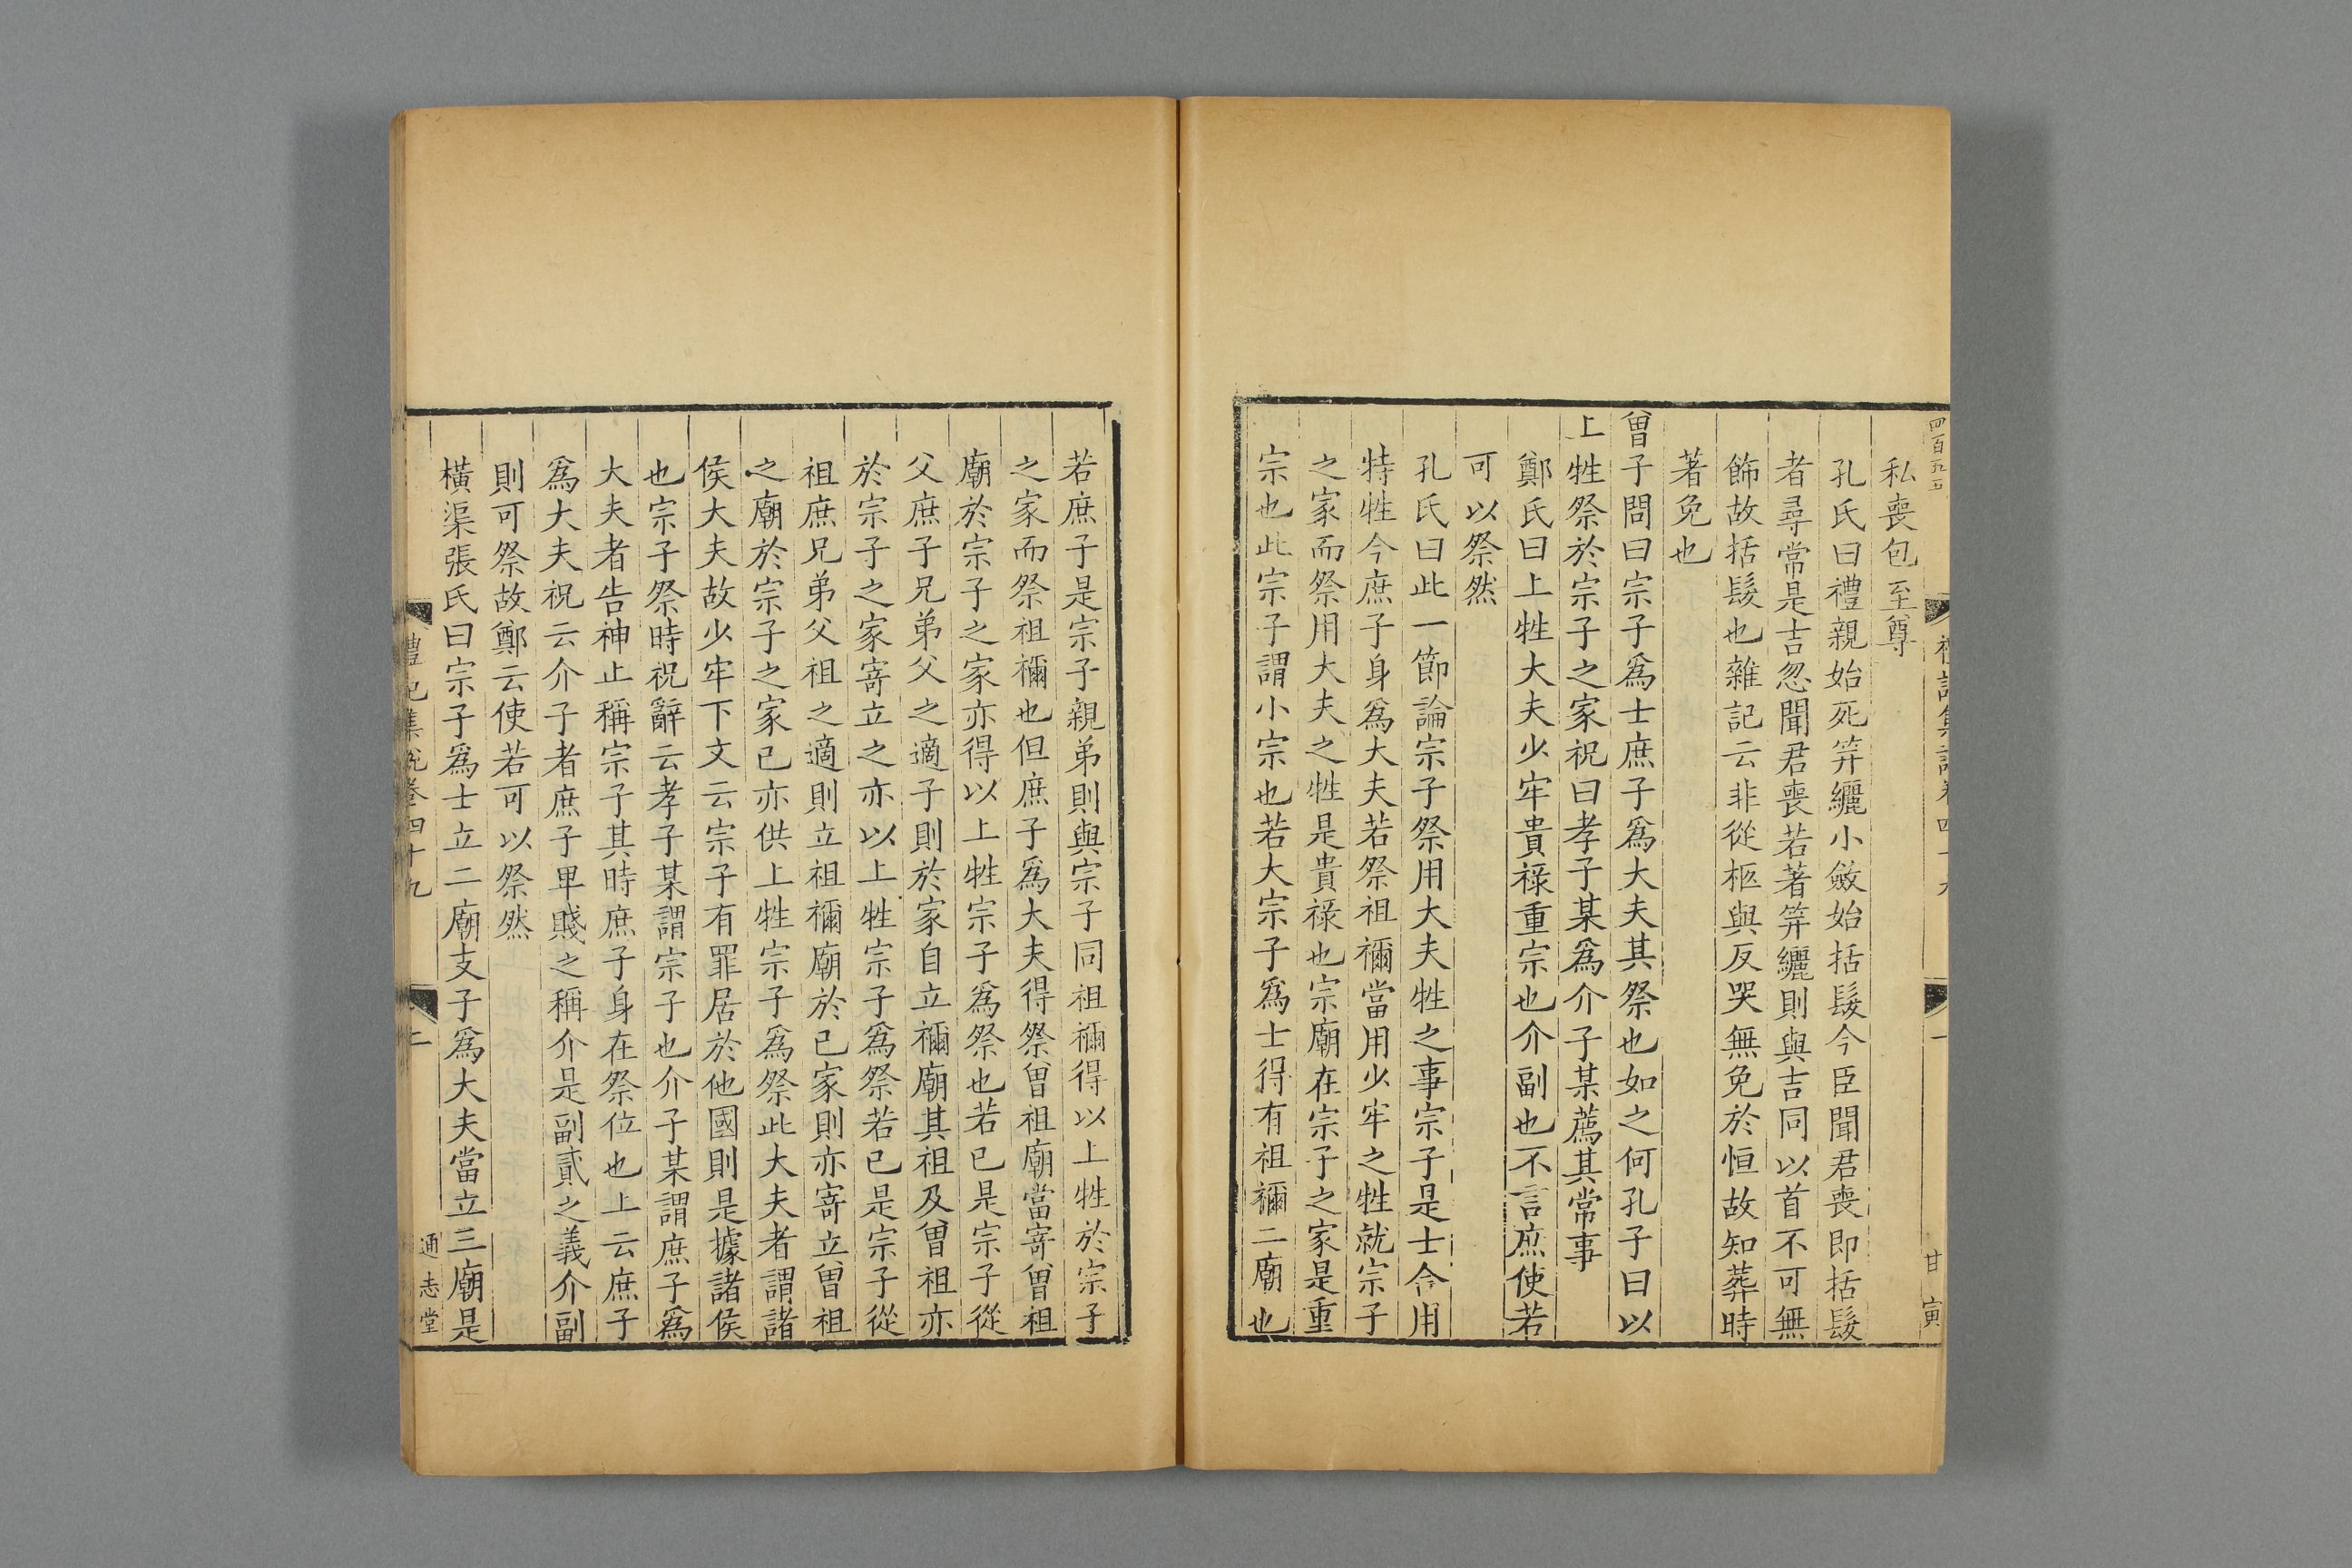 四百五十五
私喪包至尊
孔氏曰禮親始死筓纚小斂始括髮今臣聞君喪即括髮
者尋常是吉忽聞君喪若著筓纚則與吉同以首不可無
飾故括髮也雜記云非從柩與反哭無免於恒故知葬時
著免也
曾子問曰宗子爲士庶子爲大夫其祭也如之何孔子曰以
上牲祭於宗子之家祝曰孝子某爲介子某薦其常事
鄭氏曰上牲大夫少牢貴祿重宗也介副也不言庶使若
可以祭然
孔氏曰此一節論宗子祭用大夫牲之事宗子是士令用
特牲今庶子身爲大夫若祭祖禰當用少牢之牲就宗子
之家而祭用大夫之牲是貴祿也宗廟在宗子之家是重
宗也此宗子謂小宗也若大宗子爲士得有祖禰二廟也
禮記集說卷四十九
一
甘寅
若庶子是宗子親弟則與宗子同祖禰得以上牲於宗子
之家而祭祖禰也但庶子爲大夫得祭曾祖廟當寄曾祖
廟於宗子之家亦得以上牲宗子爲祭也若已是宗子從
父庶子兄弟父之適子則於家自立禰廟其祖及曾祖亦
於宗子之家寄立之亦以上牲宗子爲祭若已是宗子從
祖庶兄弟父祖之適則立祖禰廟於已家則亦寄立曾祖
之廟於宗子之家已亦供上牲宗子爲祭此大夫者謂諸
侯大夫故少牢下文云宗子有罪居於他國則是據諸侯
也宗子祭時祝辭云孝子某謂宗子也介子某謂庶子爲
大夫者告神止稱宗子其時庶子身在祭位也上云庶子
爲大夫祝云介子者庶子卑賤之稱介是副貳之義介副
則可祭故鄭云使若可以祭然
橫渠張氏曰宗子爲士立二廟支子爲大夫當立三廟是
禮記集說卷四十九
二
通志堂